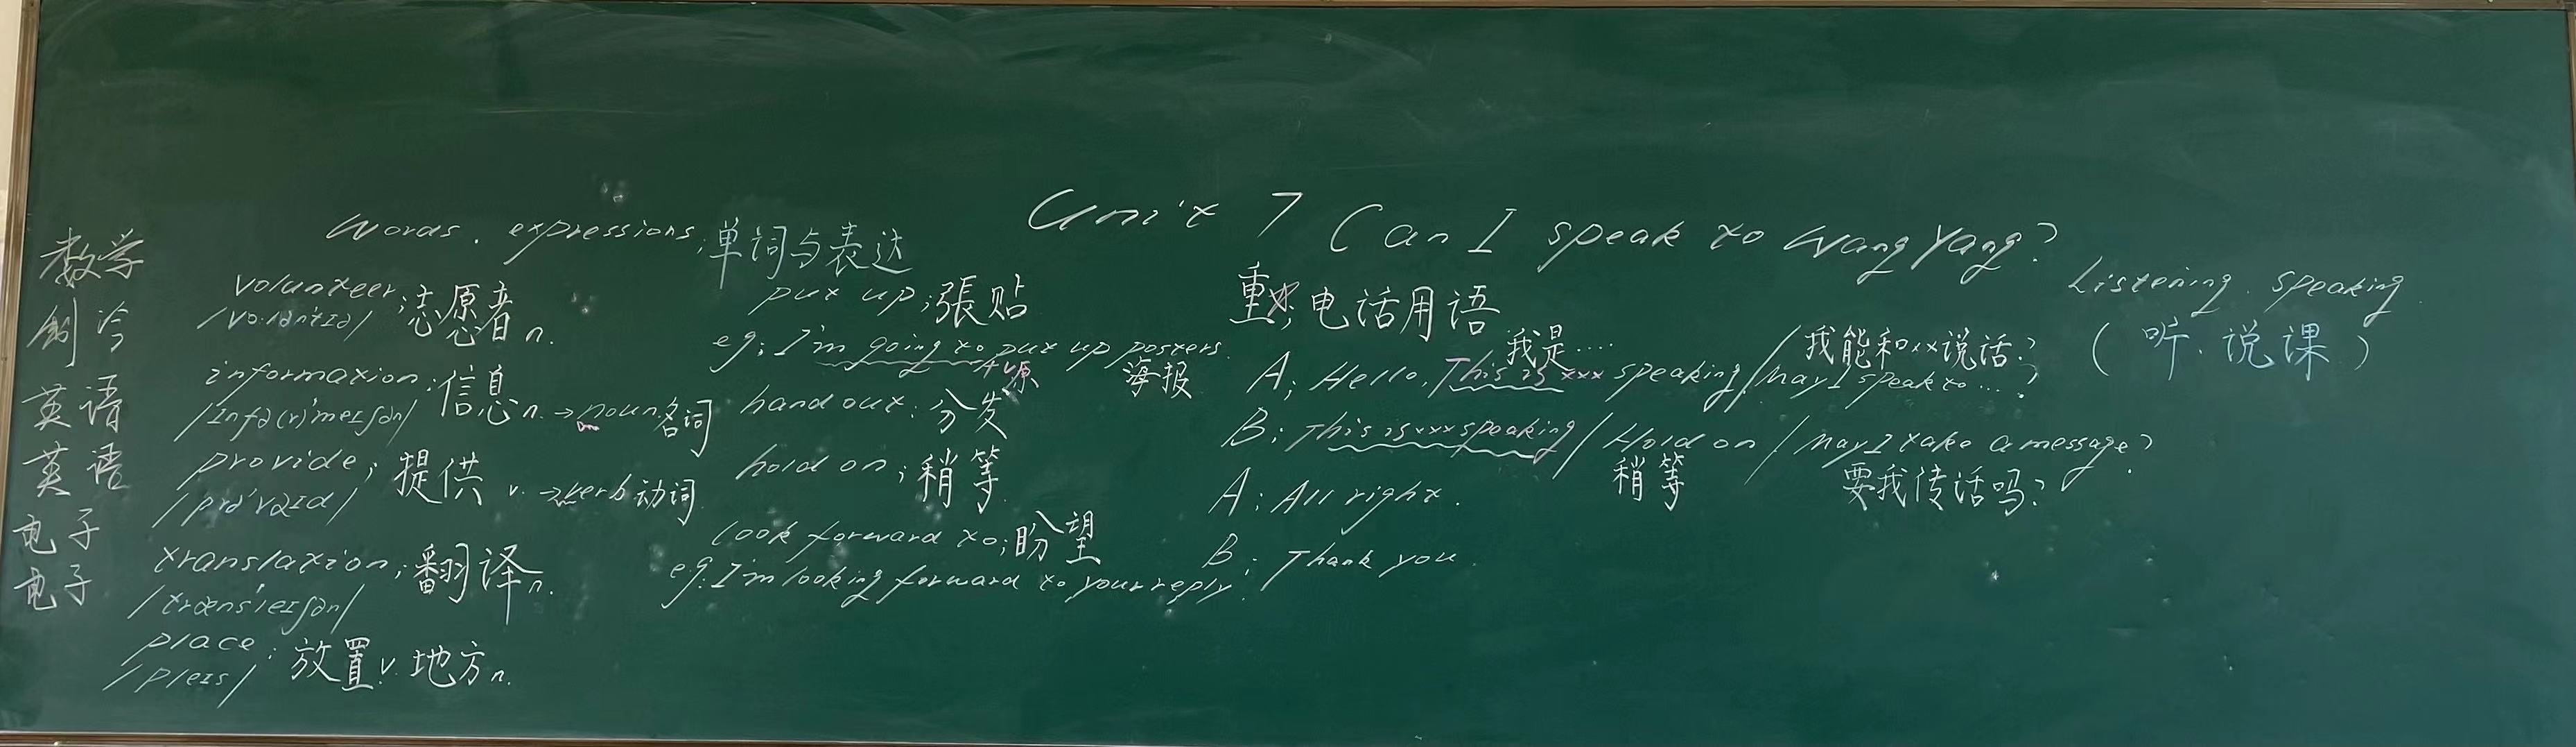 Unit 7 Can I speak to Wang Yang?
Listening. speaking
(听.说课)
数学
创冷
英语
英语
电子
电子
Words. expressions:单词与表达
volunteer:志愿者n.
information:信息n.→noun名词
provide:提供 v.→verb动词
translation:翻译n.
/trænsˈleɪʃən/
place:放置v.地方n.
/pleɪs/
put up:張贴
eg:I'm going to put up posters.
+v原 海报
hand out:分发
hold on:稍等
look forward to:盼望
eg:I'm looking forward to your reply.
电话用语
我是.... 我能和xx说话?
A:Hello,This is xxx speaking/May I speak to...?
B:This is xxx speaking/Hold on/May I take a message?
稍等 要我传话吗?
A:All right.
B:Thank you.